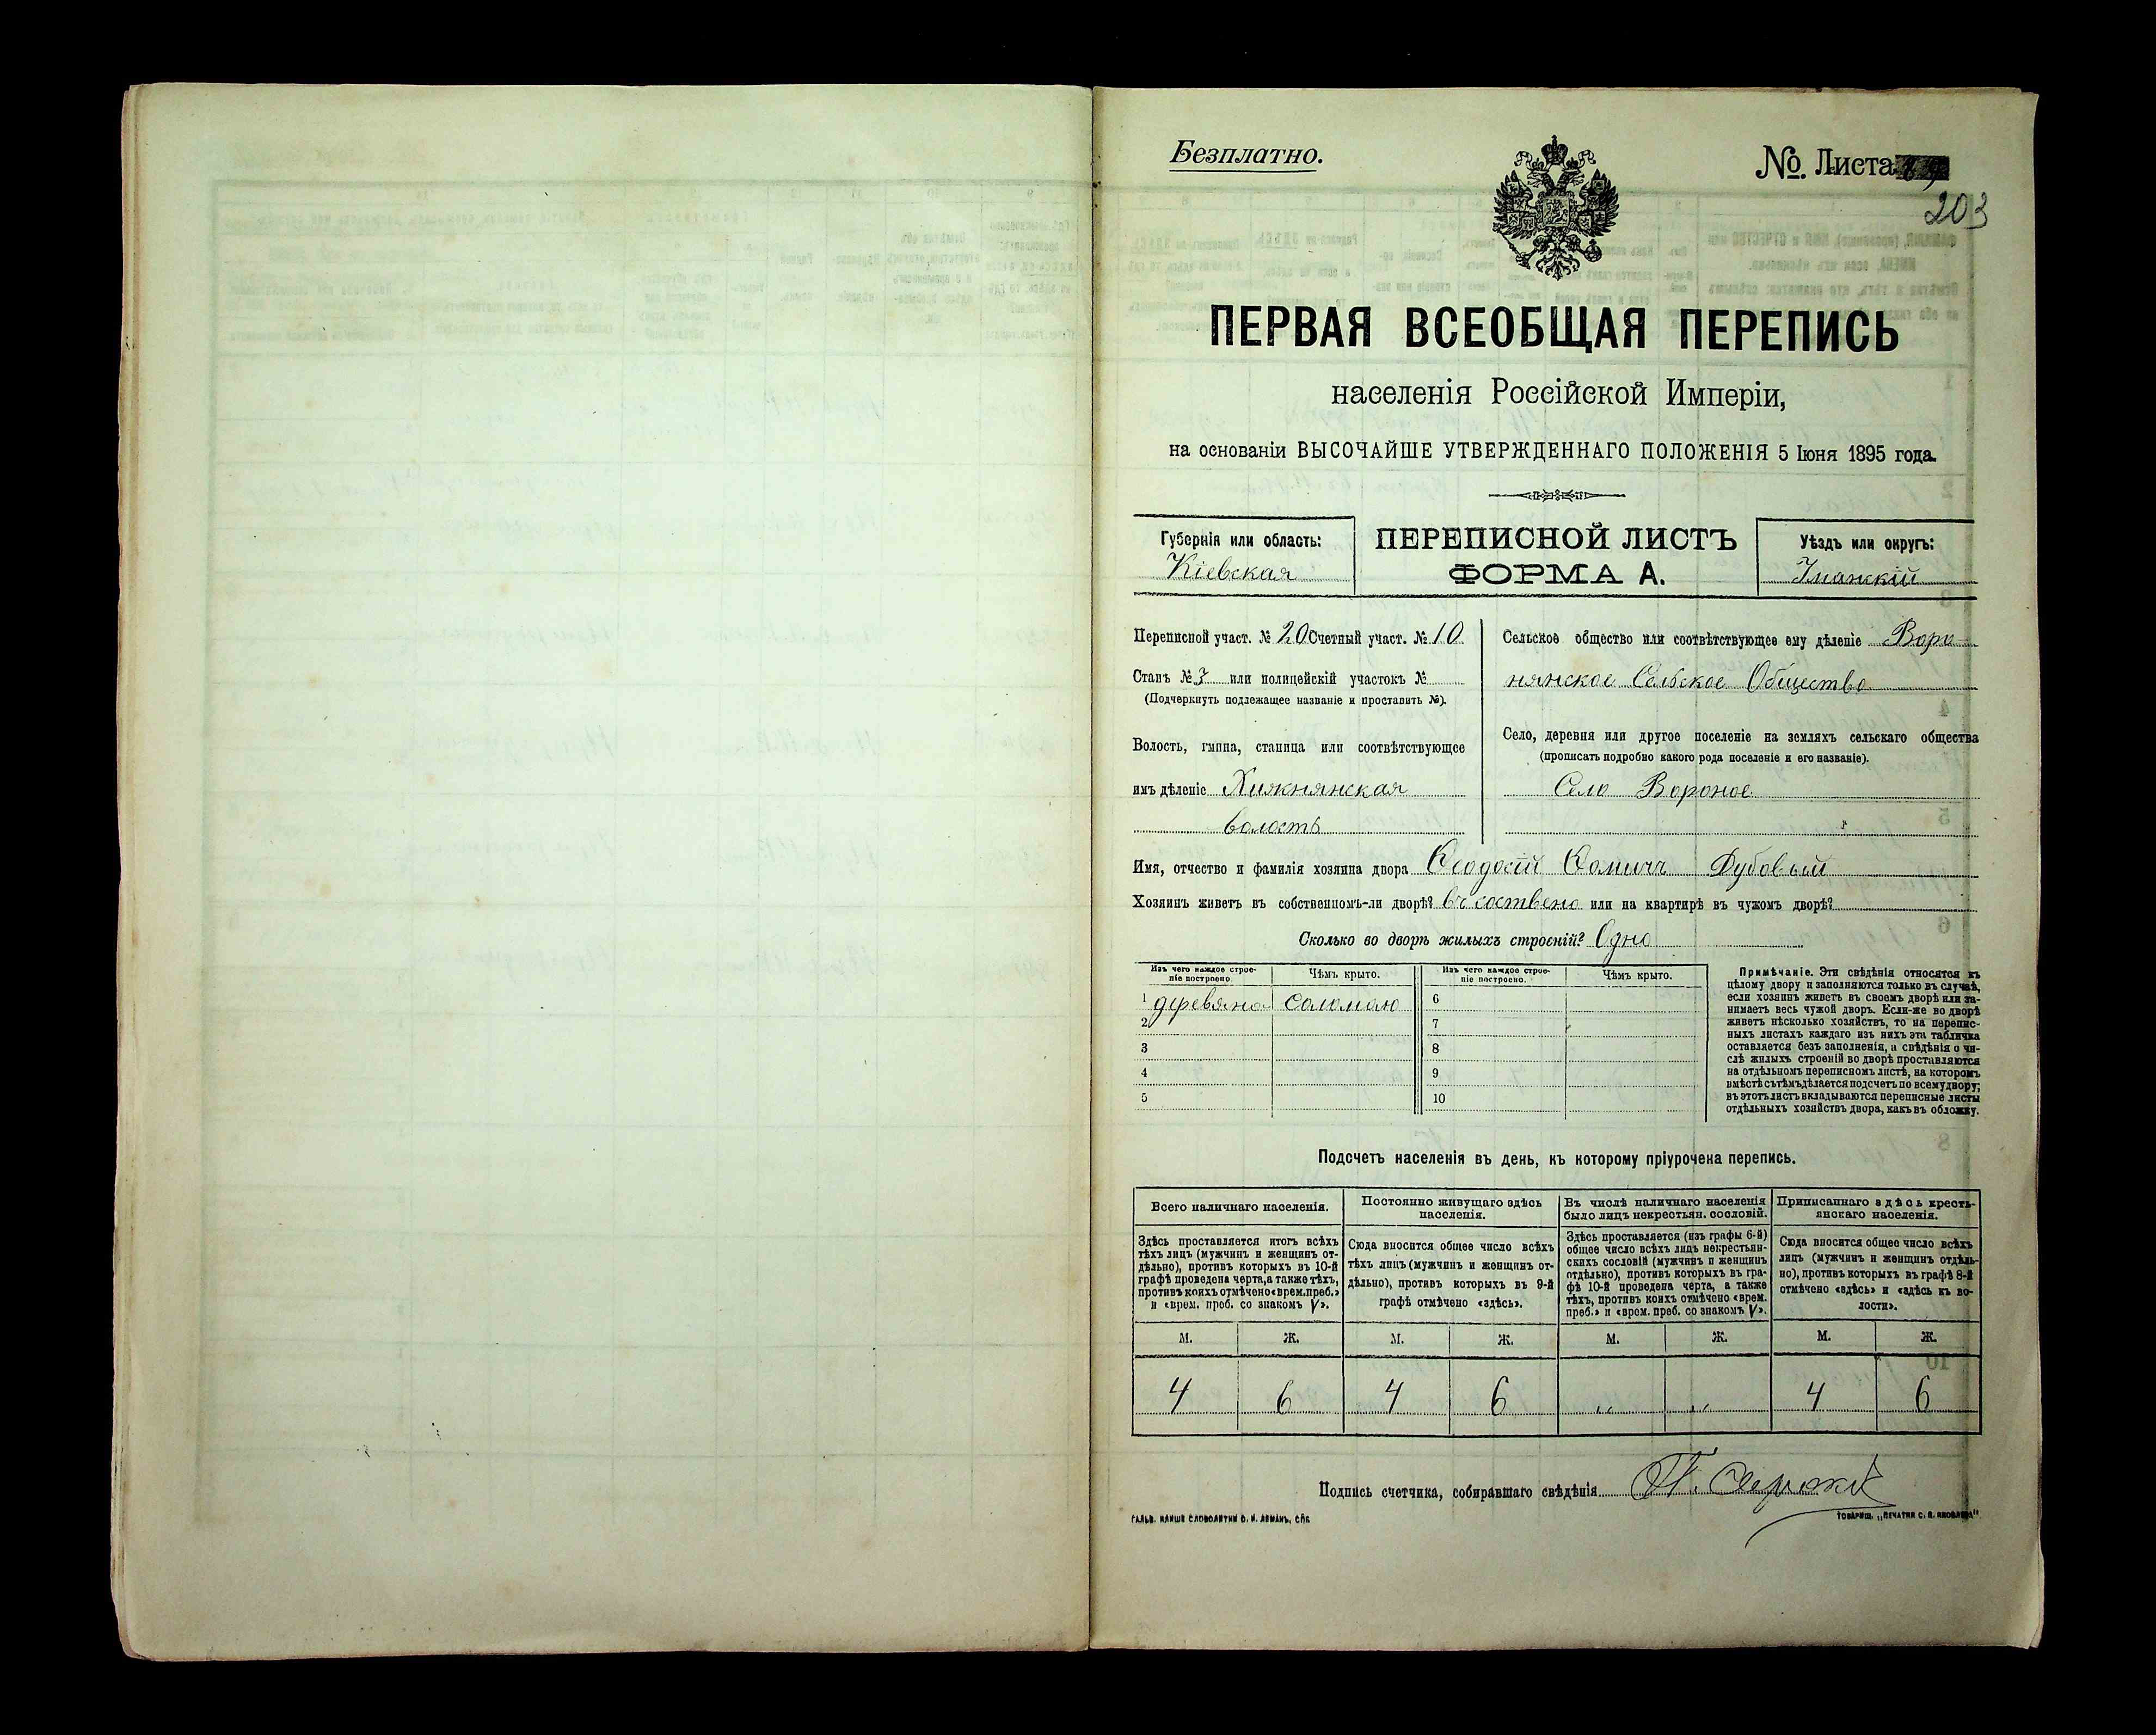 Безплатно.
№. Листа
203
ПЕРВАЯ ВСЕОБЩАЯ ПЕРЕПИСЬ
населенія Россійской Имперіи,
на основаніи ВЫСОЧАЙШЕ УТВЕРЖДЕННАГО ПОЛОЖЕНІЯ 5 Іюня 1895 года.
Губернія или область:
Кіевская
ПЕРЕПИСНОЙ ЛИСТЪ
ФОРМА А.
Уѣздъ или округъ:
Уманскій
Переписной участ. № 20 Счетный участ. № 10
Станъ № 3 или полицейскій участокъ №
(Подчеркнуть подлежащее названіе и проставить №).
Волость, гмина, станица или соотвѣтствующее
имъ дѣленіе Хижнянская
волость
Сельское общество или соотвѣтствующее ему дѣленіе Воро-
нянское Сельское Общество
Село, деревня или другое поселеніе на земляхъ сельскаго общества
(прописать подробно какого рода поселеніе и его названіе).
Село Вороное
Имя, отчество и фамилія хозяина двора Ѳеодосій Ѳомичъ Дубовый
Хозяинъ живетъ въ собственномъ-ли дворѣ? въ соствено или на квартирѣ въ чужомъ дворѣ?
Сколько во дворѣ жилыхъ строеній? Одно
Изъ чего каждое строе-
ніе построено.
Чѣмъ крыто.
Изъ чего каждое строе-
ніе построено.
Чѣмъ крыто.
1 деревяно соломою 6
2 7
3 8
4 9
5 10
Примѣчаніе. Эти свѣдѣнія относятся къ
цѣлому двору и заполняются только въ случаѣ,
если хозяинъ живетъ въ своемъ дворѣ или за-
нимаетъ весь чужой дворъ. Если-же во дворѣ
живетъ нѣсколько хозяйствъ, то на перепис-
ныхъ листахъ каждаго изъ нихъ эта табличка
оставляется безъ заполненія, а свѣдѣнія о чи-
слѣ жилыхъ строеній во дворѣ проставляются
на отдѣльномъ переписномъ листѣ, на которомъ
вмѣстѣ съ тѣмъ дѣлается подсчетъ по всему двору;
въ этотъ листъ вкладываются переписные листы
отдѣльныхъ хозяйствъ двора, какъ въ обложку.
Подсчетъ населенія въ день, къ которому пріурочена перепись.
Всего наличнаго населенія.
Здѣсь проставляется итогъ всѣхъ
тѣхъ лицъ (мужчинъ и женщинъ от-
дѣльно), противъ которыхъ въ 10-й
графѣ проведена черта, а также тѣхъ,
противъ коихъ отмѣчено «врем. преб.»
и «врем. проб. со знакомъ V».
Постоянно живущаго здѣсь
населенія.
Сюда вносится общее число всѣхъ
тѣхъ лицъ (мужчинъ и женщинъ от-
дѣльно), противъ которыхъ въ 9-й
графѣ отмѣчено «здѣсь».
Въ числѣ наличнаго населенія
было лицъ некрестьян. сословій.
Здѣсь проставляется (изъ графы 6-й)
общее число всѣхъ лицъ некрестьян-
скихъ сословій (мужчинъ и женщинъ
отдѣльно), противъ которыхъ въ гра-
фѣ 10-й проведена черта, а также
тѣхъ, противъ коихъ отмѣчено «врем.
преб.» и «врем. преб. со знакомъ V».
Приписаннаго здѣсь кресть-
янскаго населенія.
Сюда вносится общее число всѣхъ
лицъ (мужчинъ и женщинъ отдѣль-
но), противъ которыхъ въ графѣ 8-й
отмѣчено «здѣсь» и «здѣсь къ во-
лости».
М. Ж. М. Ж. М. Ж. М. Ж.
4 6 4 6 „ „ 4 6
Подпись счетчика, собиравшаго свѣдѣнія
ГАЛЬВ. КЛИШЕ СЛОВОЛИТНИ О. И. ЛЕМАНЪ, СПБ
ТОВАРИЩ. „ПЕЧАТНЯ С. П. ЯКОВЛЕВА"